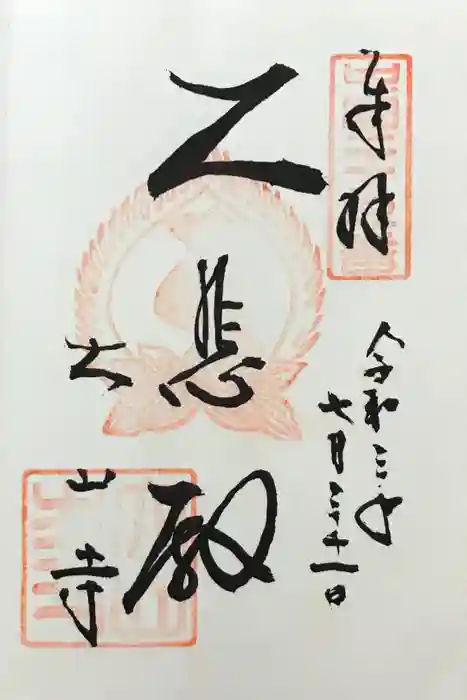 奉拝
令和三年
七月三十一日
大悲殿
大山寺